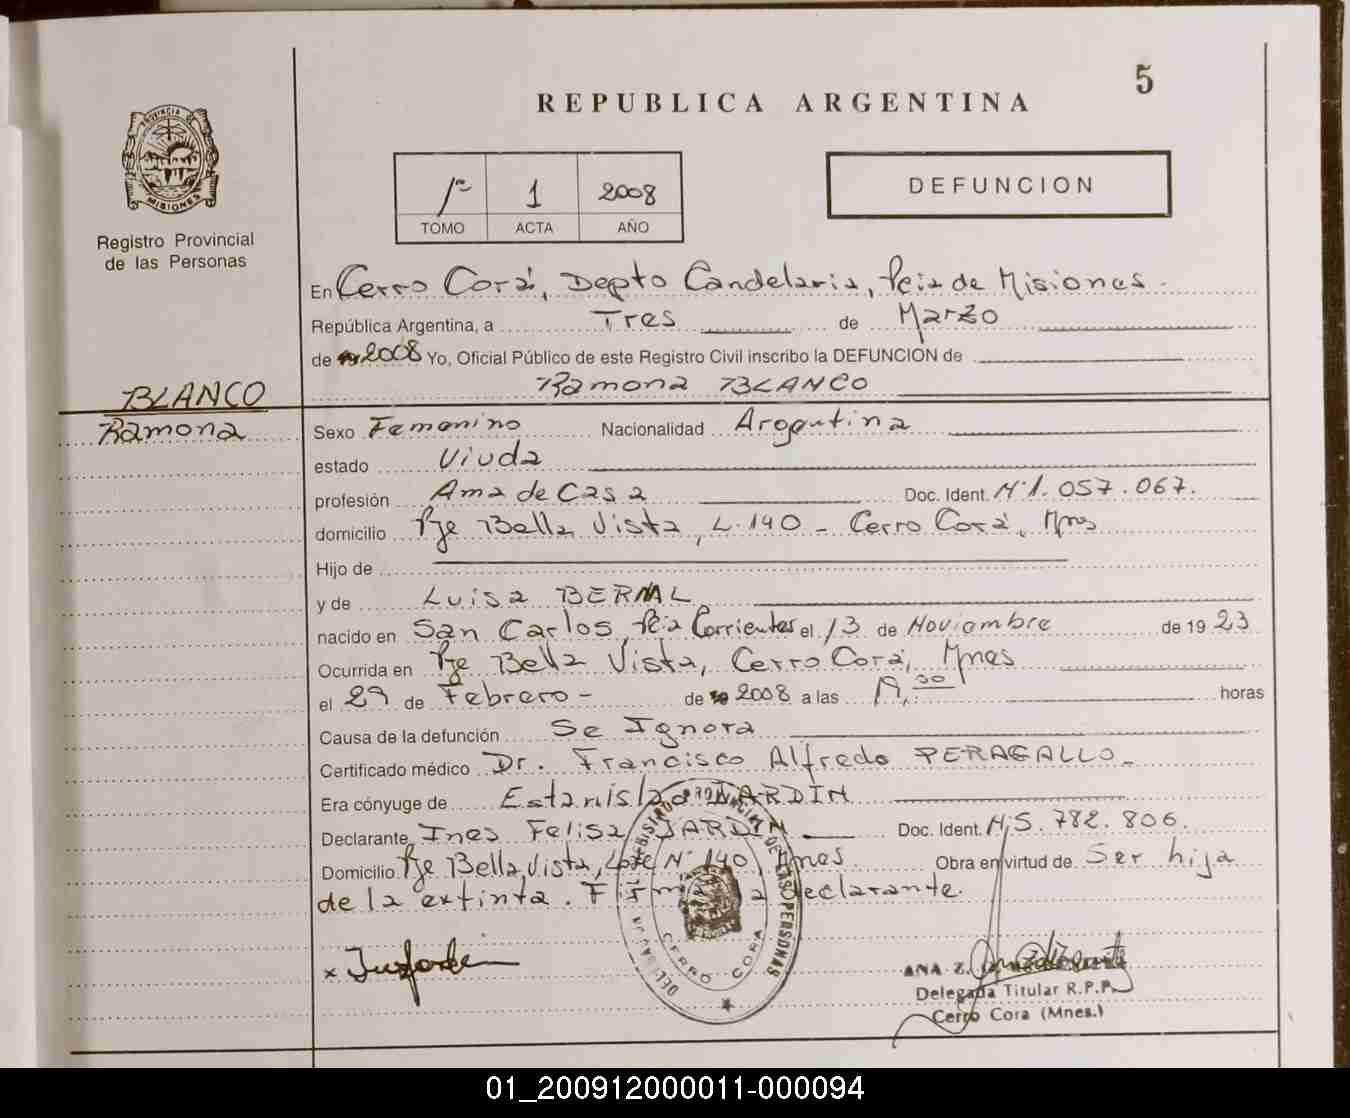 5
REPUBLICA ARGENTINA
PROVINCIA DE
MISIONES
Registro Provincial
de las Personas
1º 1 2008
TOMO ACTA AÑO
DEFUNCION
En Cerro Corá, Depto Candelaria, Pcia de Misiones.
República Argentina, a Tres de Marzo
de 2008 Yo, Oficial Público de este Registro Civil inscribo la DEFUNCION de
Ramona BLANCO
BLANCO
Ramona
Sexo Femenino Nacionalidad Argentina
estado Viuda
profesión Ama de Casa Doc. Ident. Nº1.057.067.
domicilio Pje Bella Vista, L.140 - Cerro Corá, Mnes
Hijo de
y de Luisa BERNAL
nacido en San Carlos, Pcia Corrientes el 13 de Noviembre de 19 23
Ocurrida en Pje Bella Vista, Cerro Corá, Mnes
el 29 de Febrero - de 2008 a las 19,30 horas
Causa de la defunción Se Ignora
Certificado médico Dr. Francisco Alfredo PERAGALLO -
Era cónyuge de Estanislao JARDIN
Declarante Ines Felisa JARDIN Doc. Ident. Nº5.782.806.
Domicilio Pje Bella Vista, Lote Nº 140, Mnes. Obra en virtud de Ser hija
de la extinta. Firma la declarante.
REGISTRO PROVINCIAL DE LAS PERSONAS
CERRO CORA
x
ANA Z.
Delegada Titular R.P.P.
Cerro Cora (Mnes.)
01_200912000011-000094